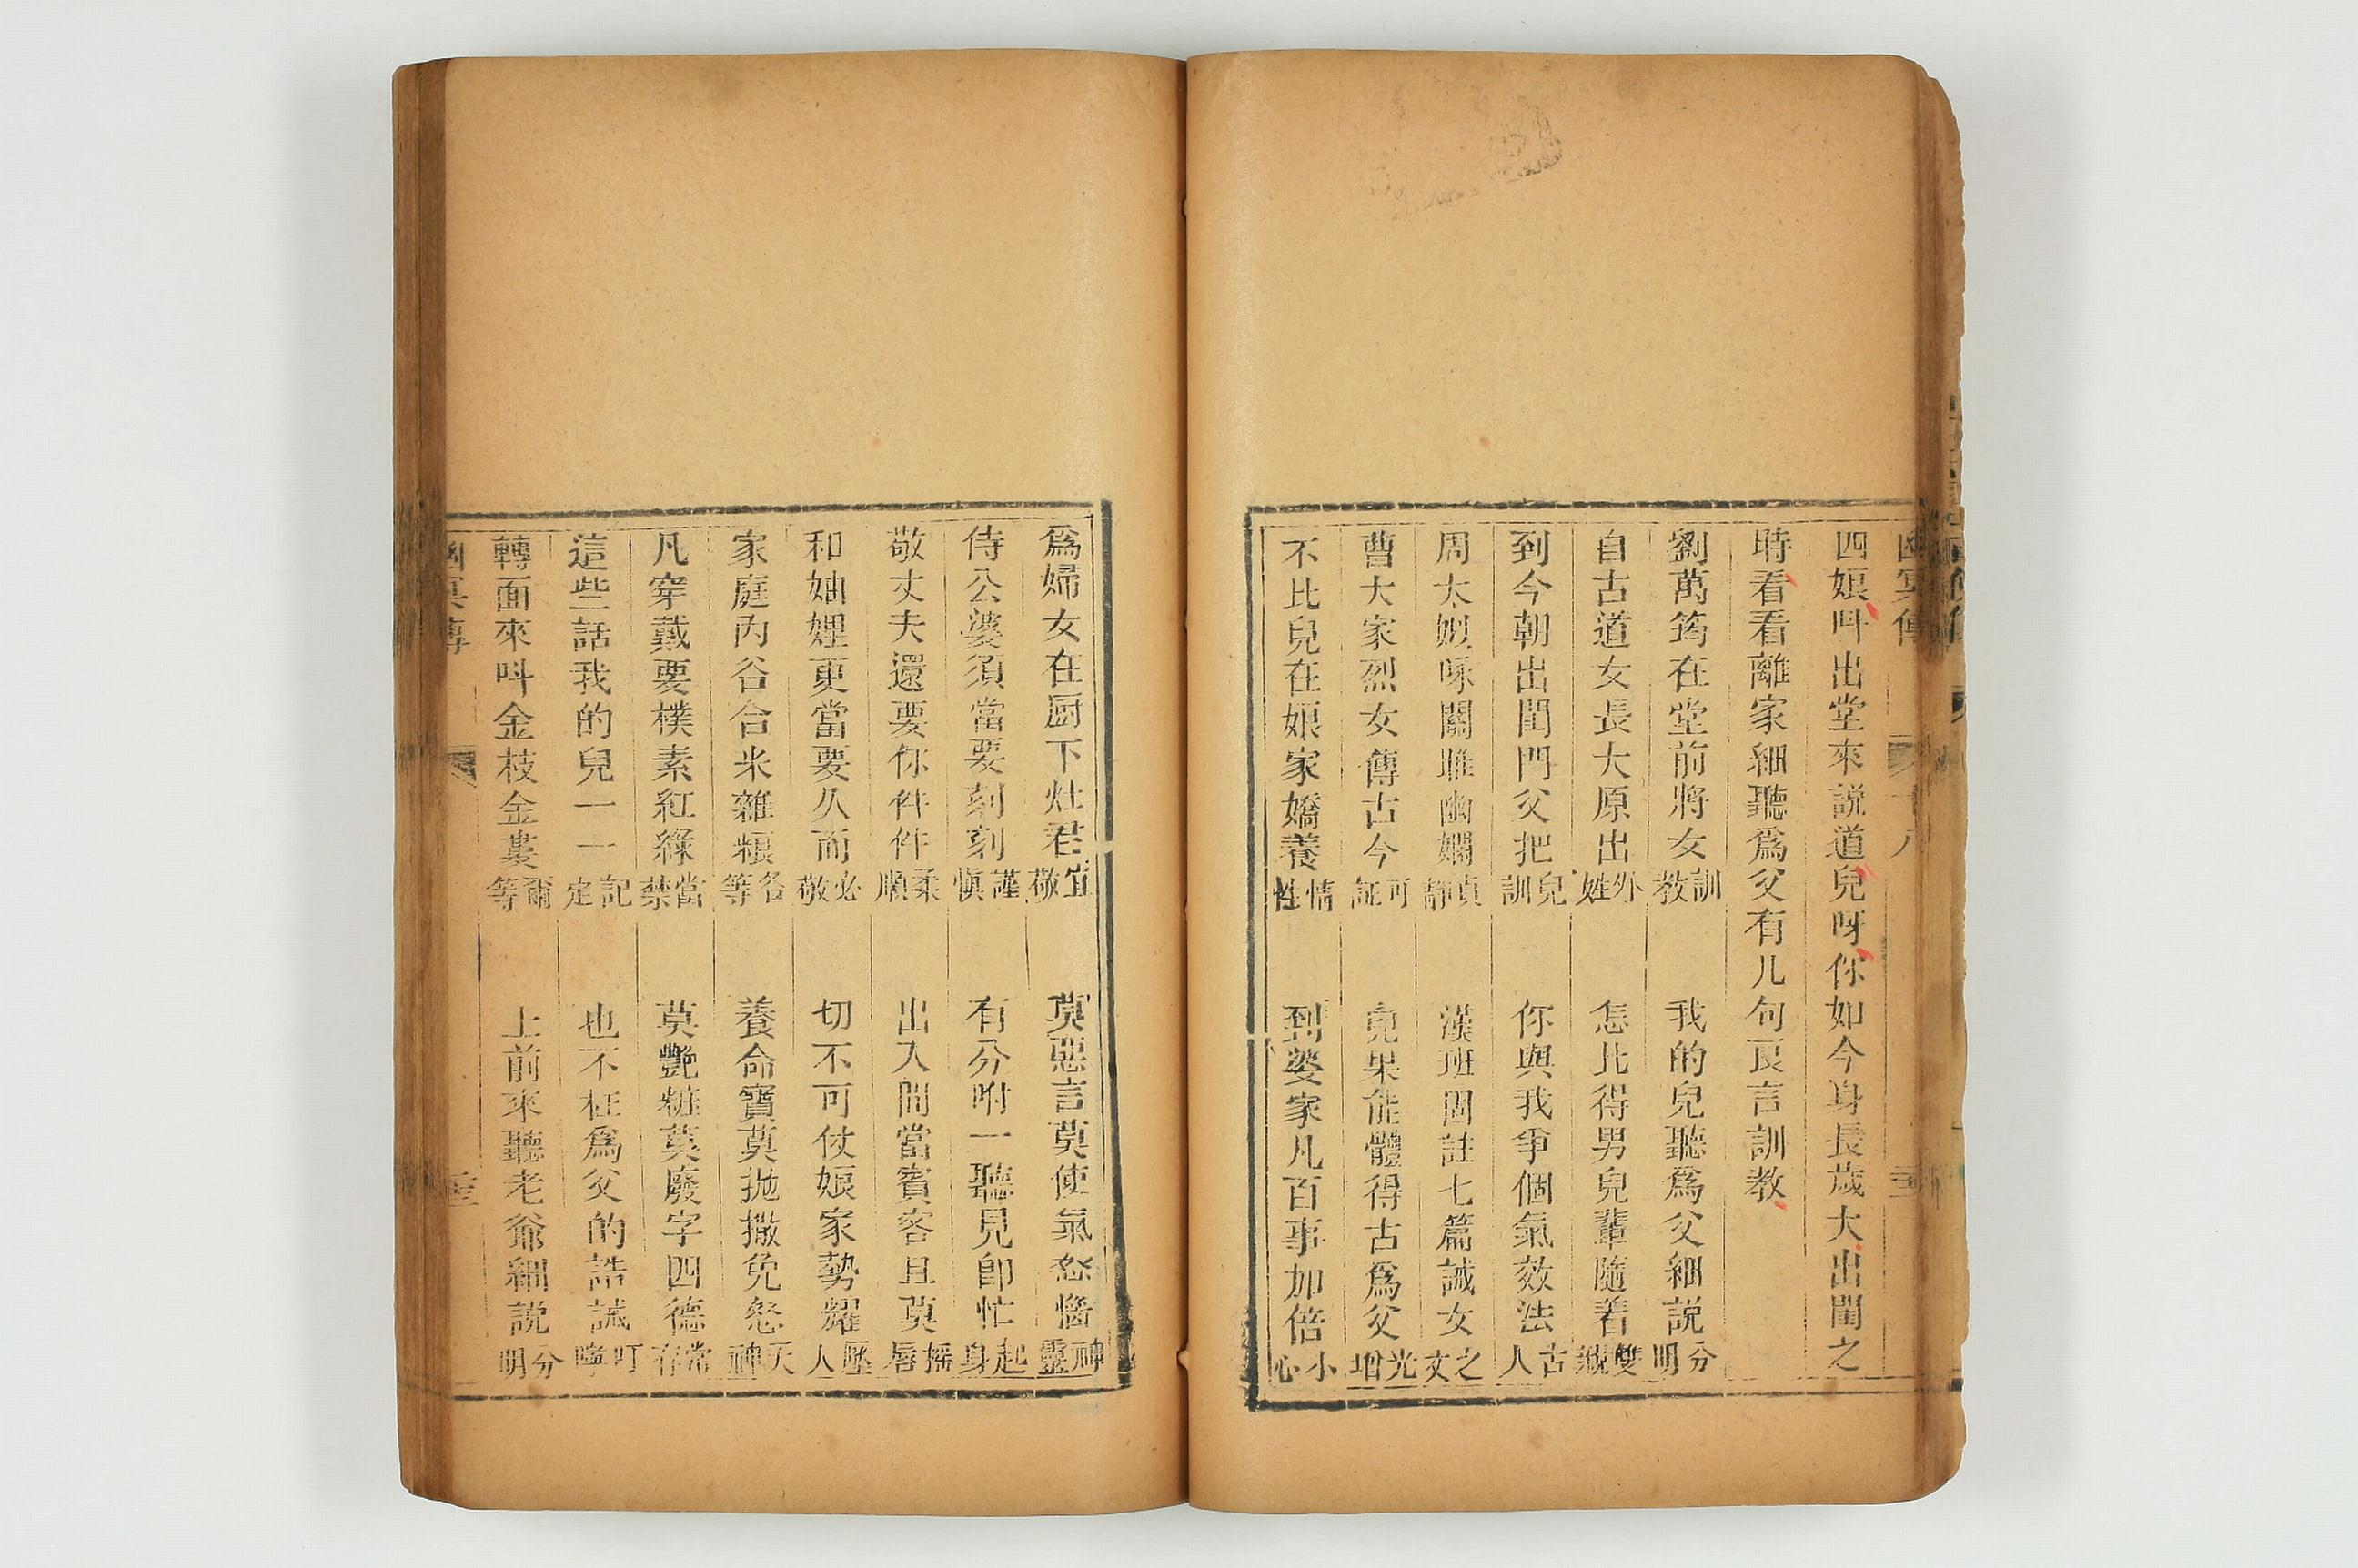 幽冥傳 十八
四娘呌出堂來説道兒呀你如今身長歲大出閨之
時看看離家細聽爲父有几句良言訓教
劉萬筠在堂前將女訓教 我的兒聽爲父細説分明
自古道女長大原出外姓 怎比得男兒輩隨着雙親
到今朝出閨門父把兒訓 你與我爭個氣效法古人
周太姒咏關雎幽嫻貞靜 漢班固註七篇誡女之文
曹大家烈女傳古今可証 兒果能體得古爲父光增
不比兒在娘家嬌養情性 到婆家凡百事加倍小心
爲婦女在厨下灶君宜敬 莫惡言莫使氣怒惱神靈
侍公婆須當要刻刻謹愼 有分咐一聽見卽忙起身
敬丈夫還要你件件柔順 出入間當賓客且莫摇唇
和妯娌更當要久而必敬 切不可仗娘家勢耀壓人
家庭內谷合米雜粮各等 養命寶莫抛撒免怒天神
凡穿戴要樸素紅綠當禁 莫艷粧莫廢字四德常存
這些話我的兒一一記定 也不枉爲父的誥誡叮嚀
轉面來呌金枝金萋爾等 上前來聽老爺細説分明
幽冥傳